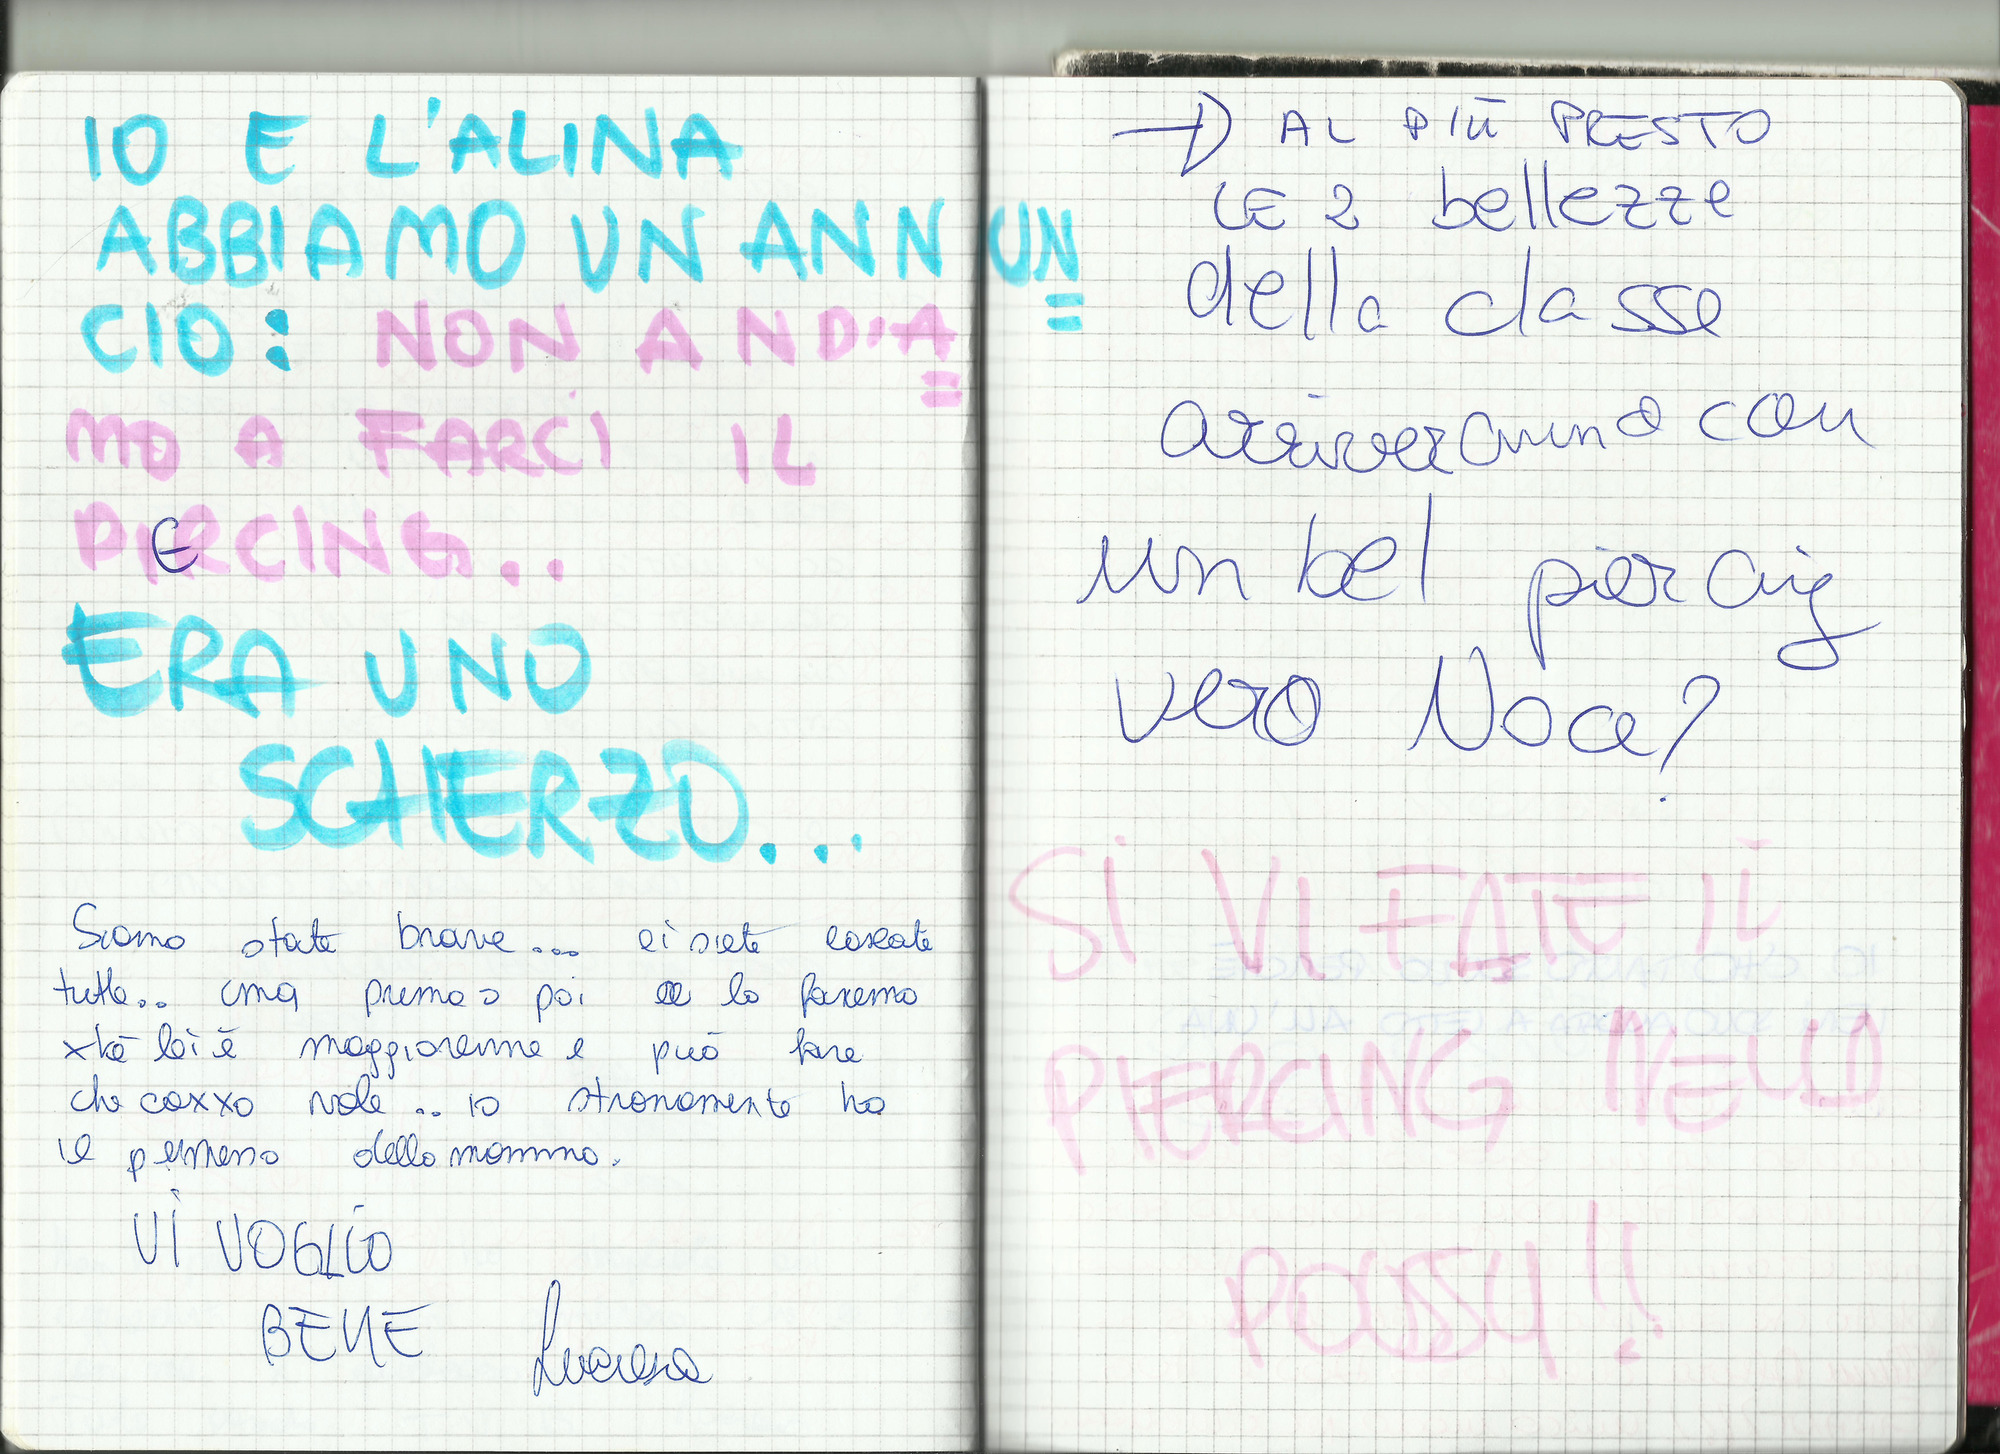 IO E L'ALINA
ABBIAMO UN ANNUN=
CIO: NON ANDIA=
MO A FARCI IL
PIERCING..
ERA UNO
SCHERZO...
Siamo state brave... ci siete cascate
tutte.. ma prima o poi ce lo faremo
xkè lei è maggiorenne e può fare
che caxxo vole.. io stranamente ho
il permesso della mamma.
VI VOGLIO
BENE
→ AL PIÙ PRESTO
LE 2 bellezze
della classe
arriveranno con
un bel piercig
vero Noce?
SI VI FATE IL
PIERCING NELLA
POUSSY!!